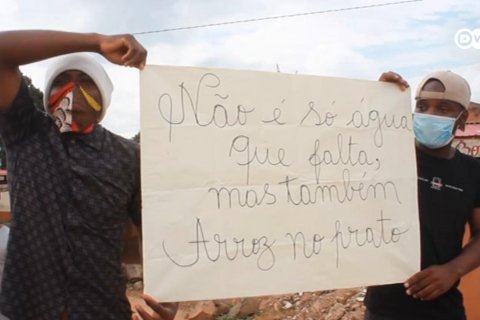 Não é só água
que falta,
mas também
Arroz no prato
DW